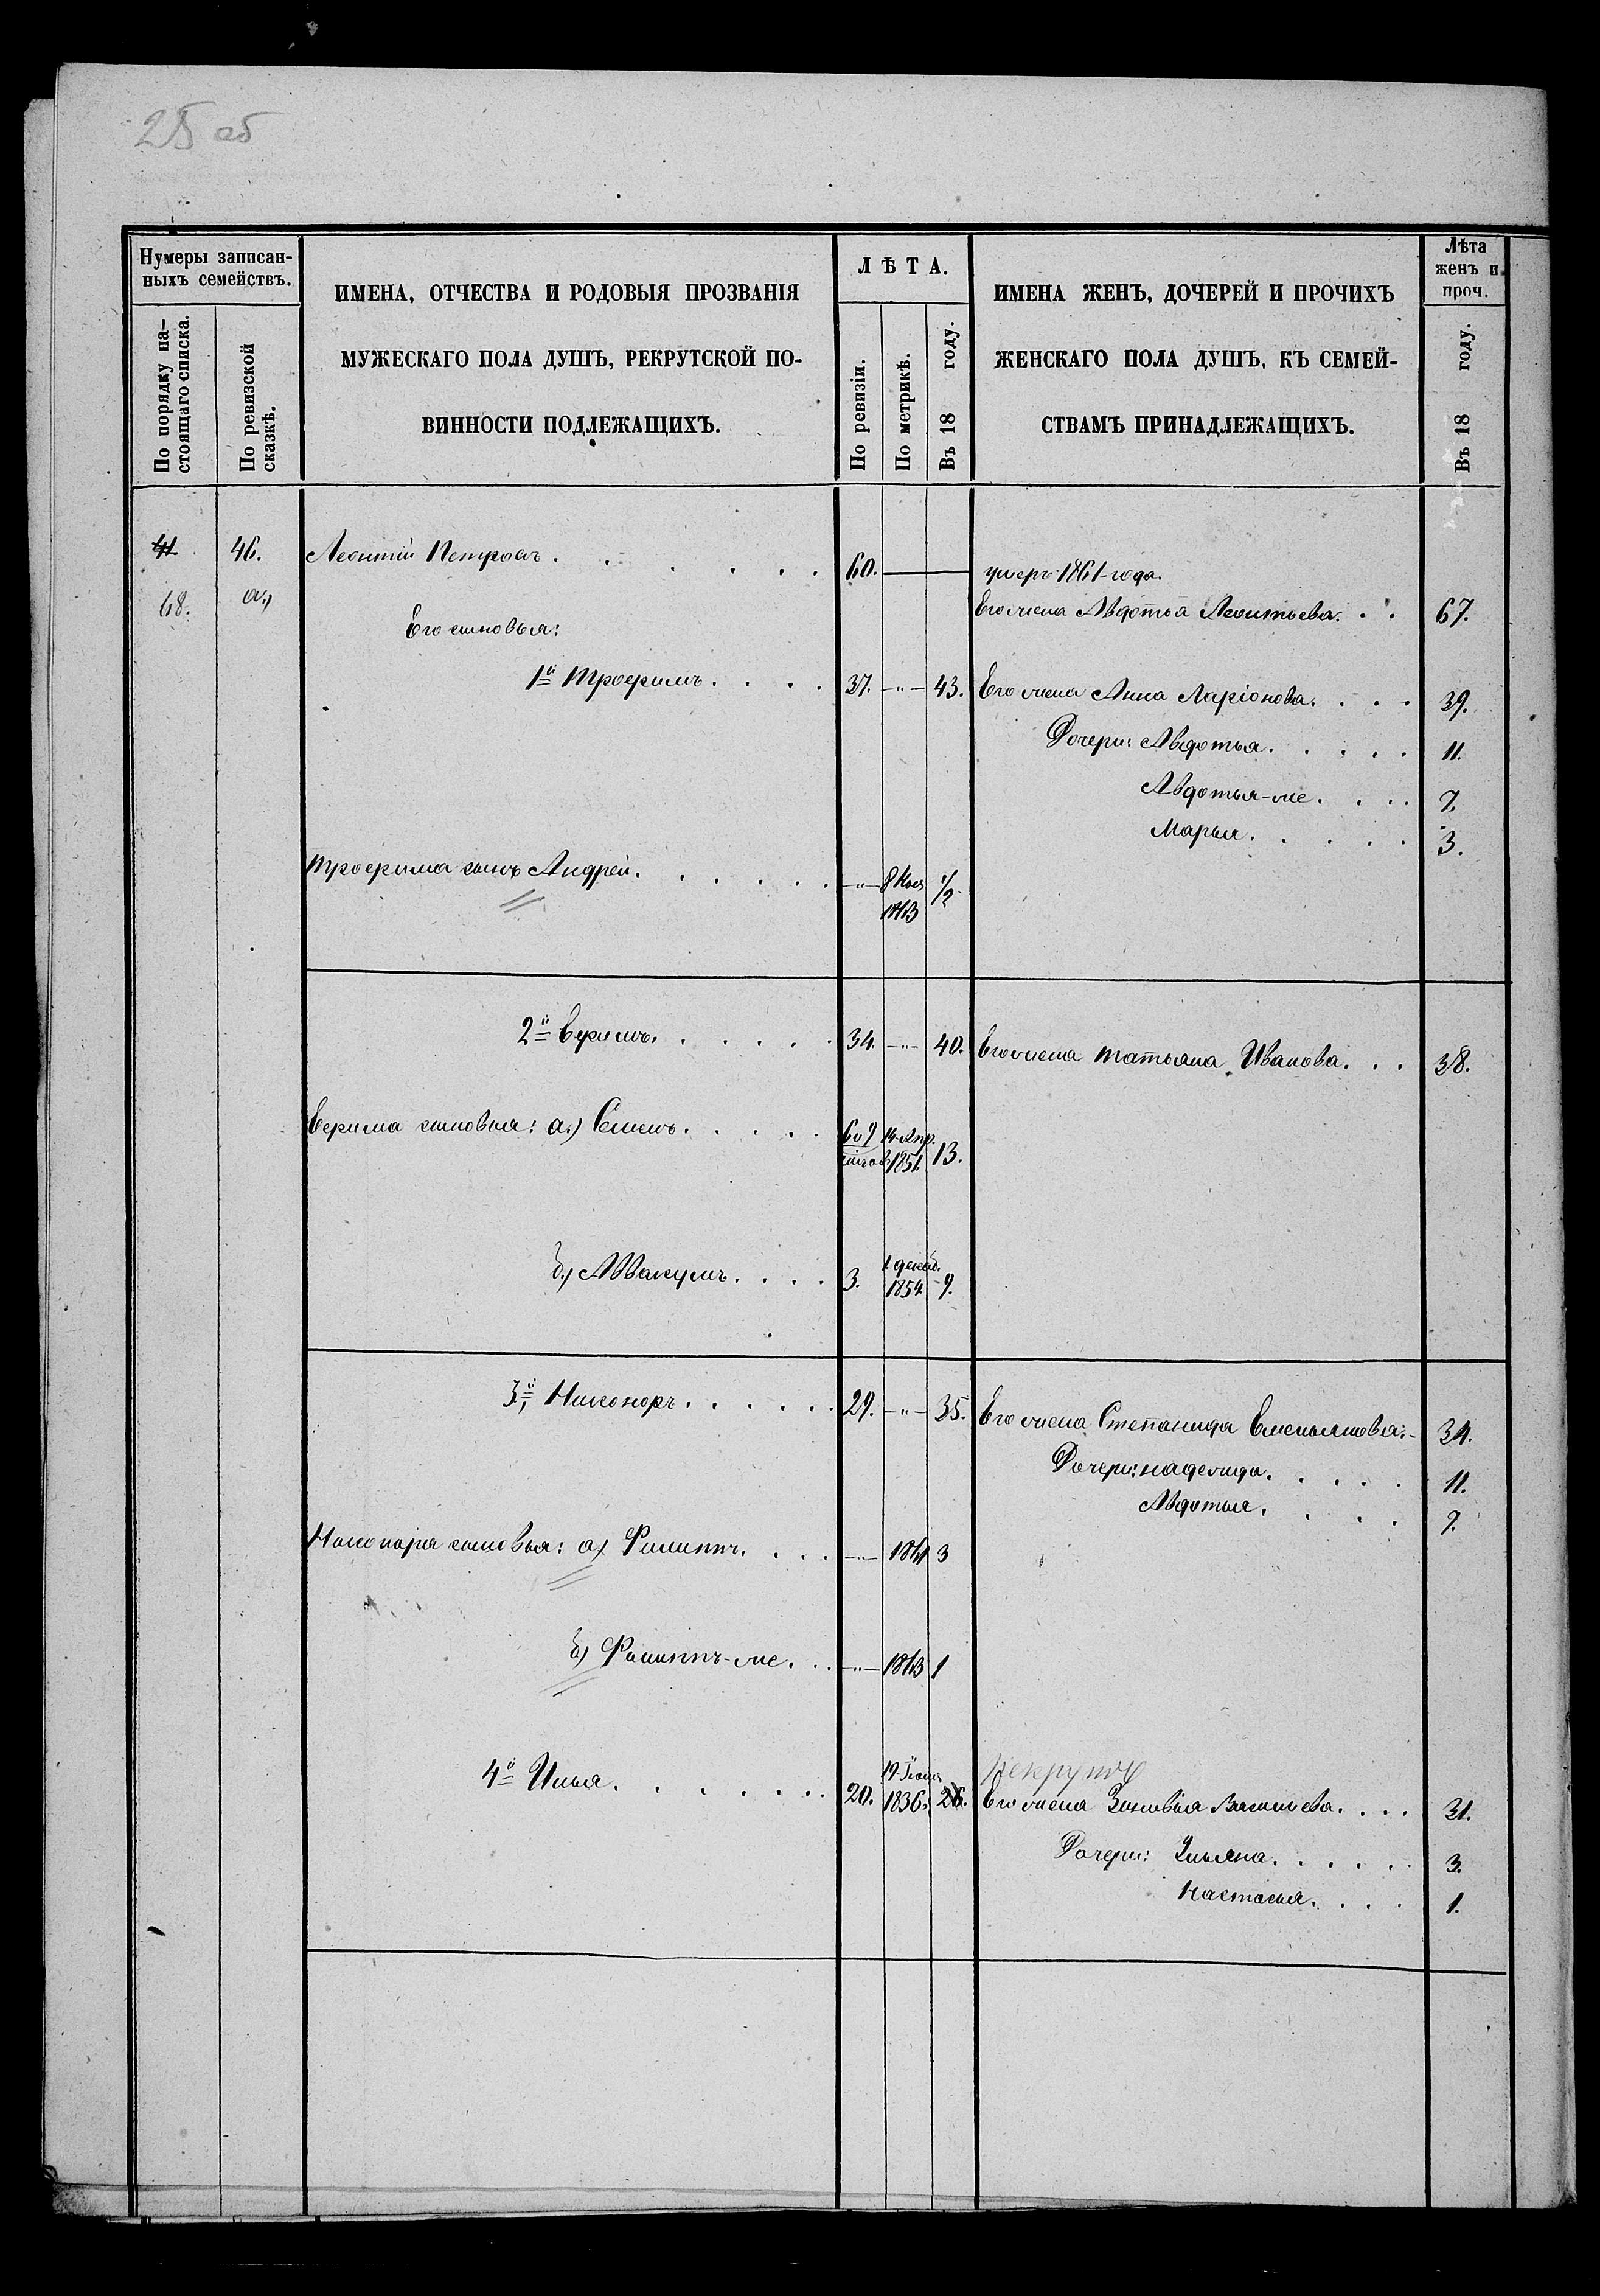 25 об
Нумеры записан-
ныхъ семействъ.
По порядку на-
стоящаго списка.
По ревизской
сказкѣ.
ИМЕНА, ОТЧЕСТВА И РОДОВЫЯ ПРОЗВАНІЯ
МУЖЕСКАГО ПОЛА ДУШЪ, РЕКРУТСКОЙ ПО-
ВИННОСТИ ПОДЛЕЖАЩИХЪ.
ЛѢТА.
По ревизіи.
По метрикѣ.
Въ 18 году.
ИМЕНА ЖЕНЪ, ДОЧЕРЕЙ И ПРОЧИХЪ
ЖЕНСКАГО ПОЛА ДУШЪ, КЪ СЕМЕЙ-
СТВАМЪ ПРИНАДЛЕЖАЩИХЪ.
Лѣта
женъ и
проч.
Въ 18 году.
41 46. Леонтій Петровъ. 60. умеръ 1861 года.
68. а.)
Его жена Авдотья Леонтьева. 67.
Его сыновья:
1й Трофимъ. 37. -"- 43. Его жена Анна Ларіонова. 39.
Дочери: Авдотья. 11.
Авдотья-же. 7.
Марья. 3.
Трофима сынъ Андрей. -"- 8 1863 1/2
2й Ефимъ. 34. -"- 40. Его жена Татьяна Иванова. 38.
Ефима сыновья: а.) Семенъ. 14 Апр. 1851. 13.
б.) Аввакумъ. 3. 1 декаб. 1854. 9.
3й, Никоноръ. 29. -"- 35. Его жена Степанида Емельянова. 34.
Дочери: надежда. 11.
Авдотья. 7.
Никонора сыновья: а) Филиппъ. -"- 1861 3
б) Филиппъ-же. -"- 1863 1
4й Илья. 20. 19 1836. 26. рекрутъ
Его жена Зиновія Васильева. 31.
Дочери: Ульяна. 3.
Настасья. 1.